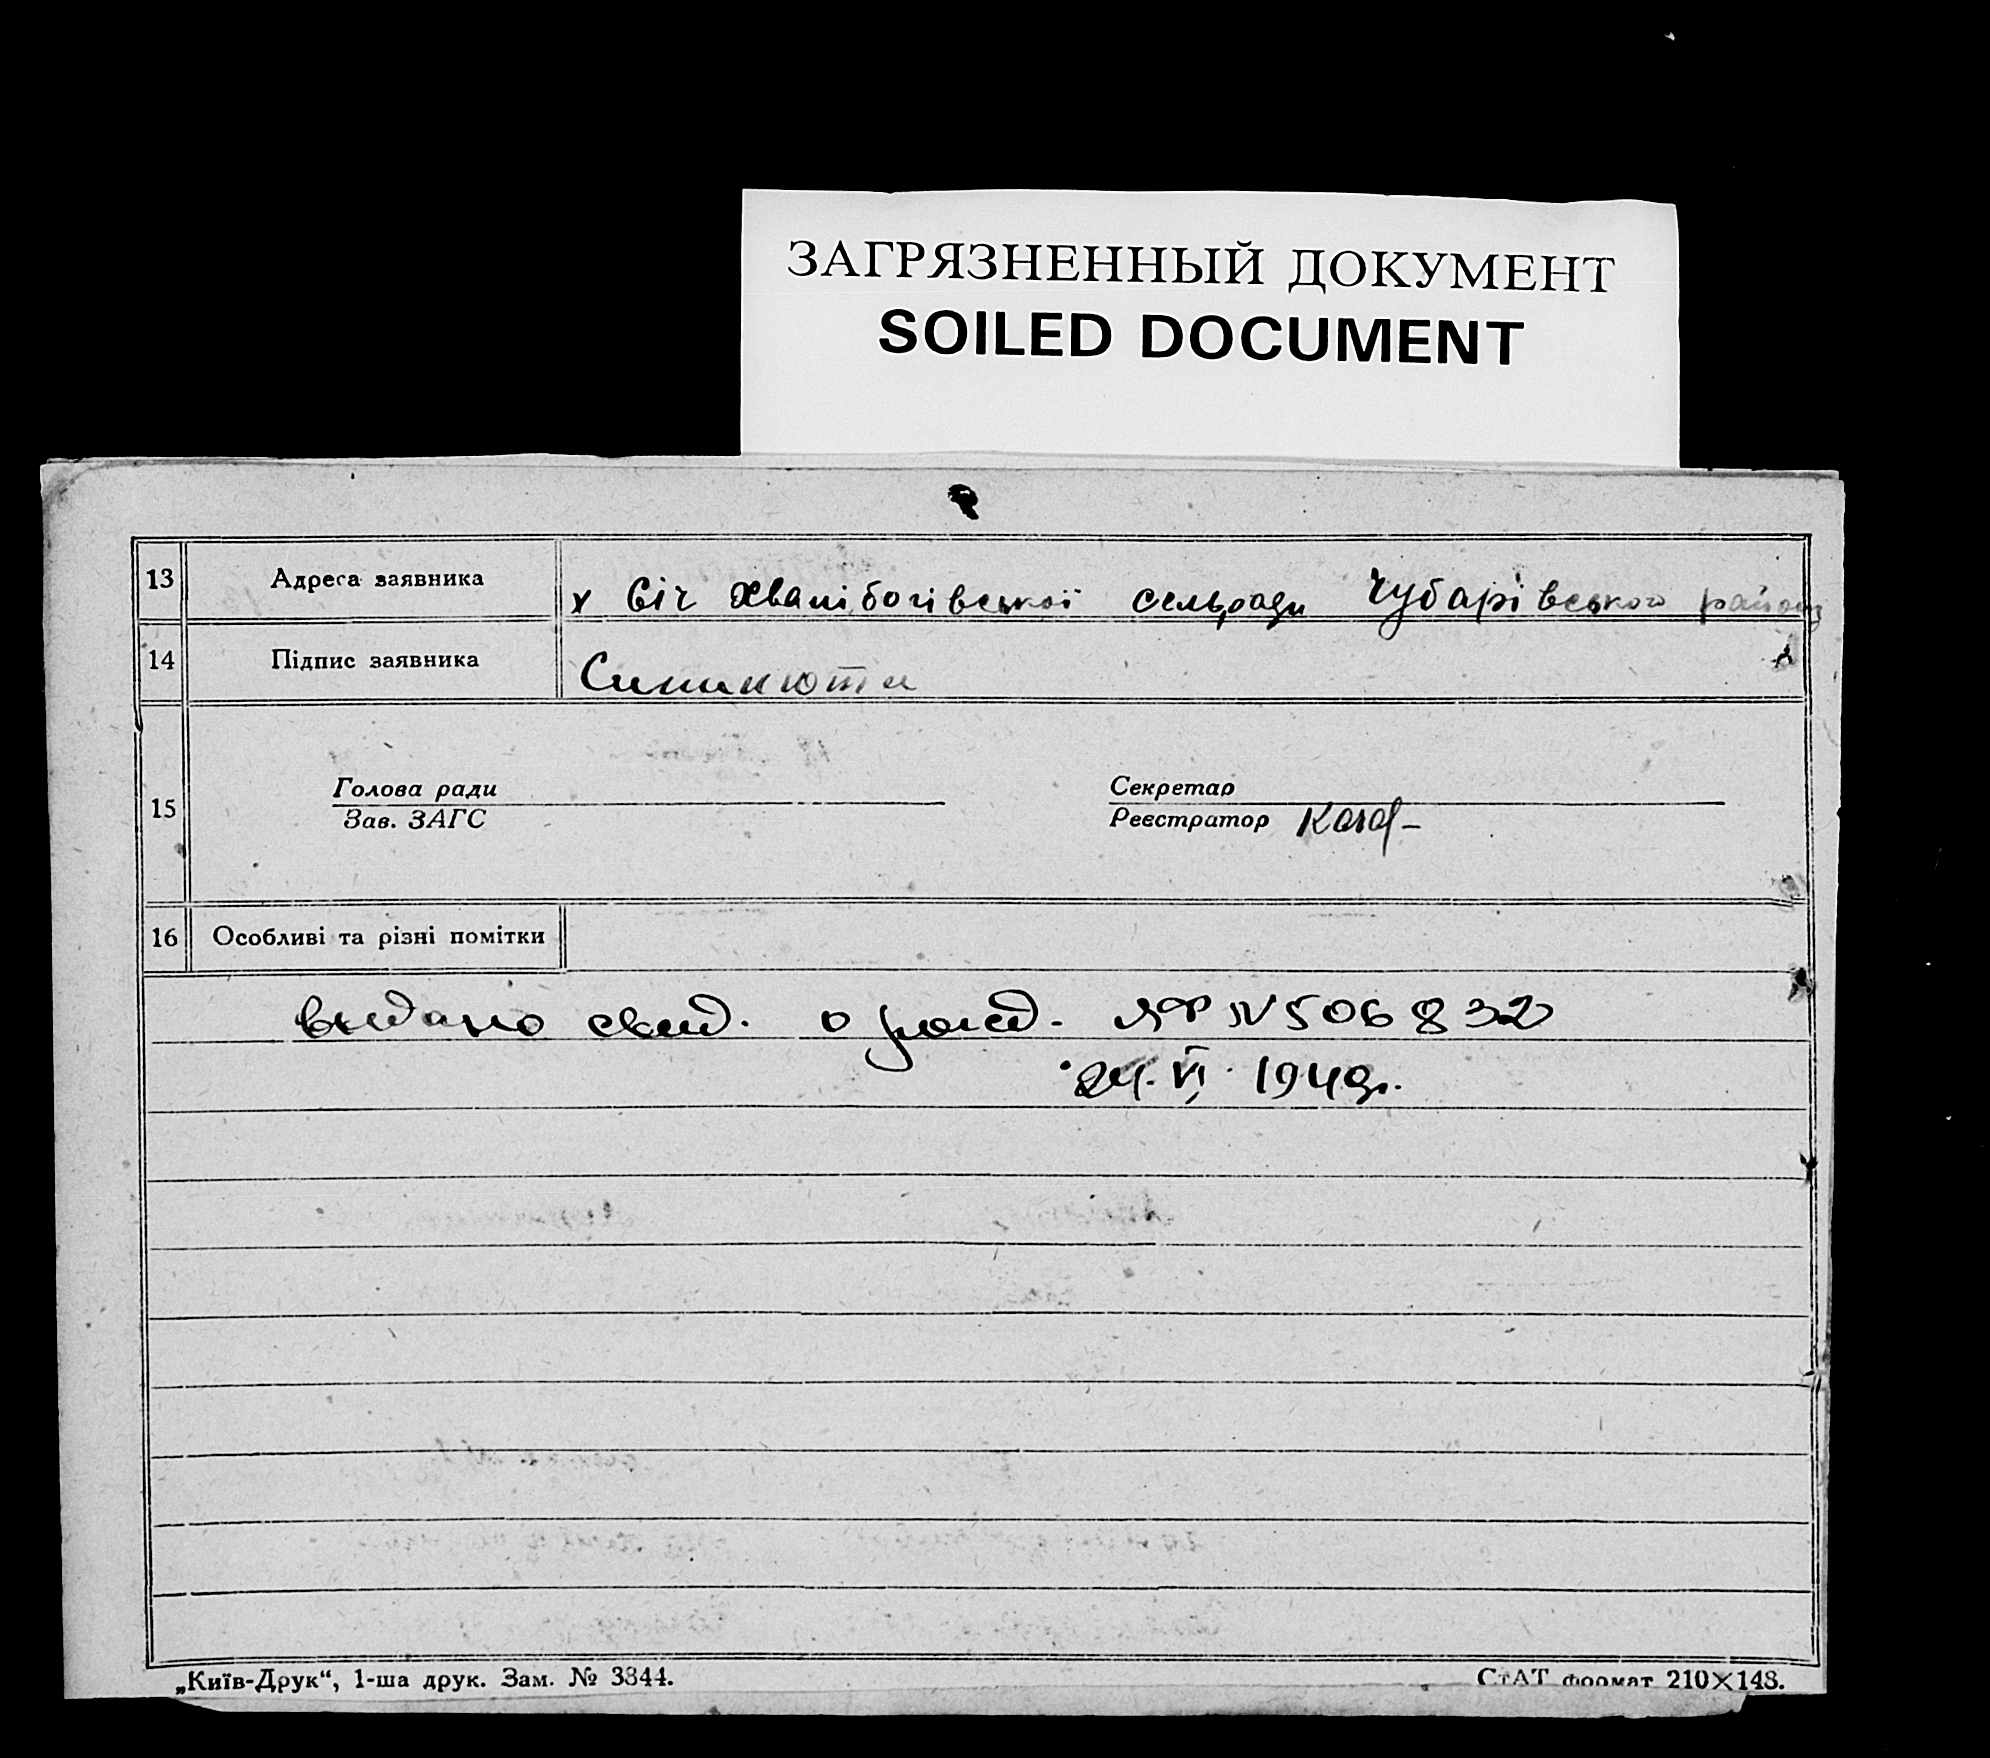 ЗАГРЯЗНЕННЫЙ ДОКУМЕНТ
SOILED DOCUMENT
13 Адреса заявника х Січ Хвалібогівської сельради Чубарівського району
14 Підпис заявника
15 Голова ради Секретар
Зав. ЗАГС Реєстратор
16 Особливі та різні помітки
выдано свид. о рожд. ЯФ N 506832
24. VI. 1949г.
„Київ-Друк“, 1-ша друк. Зам. № 3344. СтАТ формат 210×148.